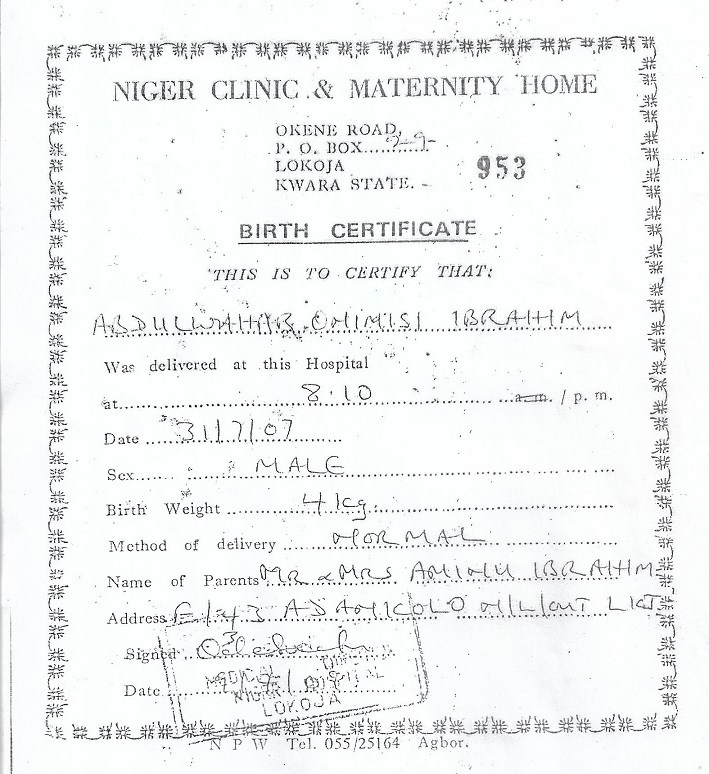 NIGER CLINIC & MATERNITY HOME
OKENE ROAD,
P. O. BOX
LOKOJA
KWARA STATE.
953
BIRTH CERTIFICATE
THIS IS TO CERTIFY THAT:
ABDULWAHAB OHIMISI IBRAHIM
Was delivered at this Hospital
at 8.10 a.m. / p. m.
Date 31/7/07
Sex MALE
Birth Weight 4 kg
Method of delivery NORMAL
Name of Parents MR & MRS AMINU IBRAHIM
Address
Signed
Date
LOKOJA
N P W Tel. 055/25164 Agbor.